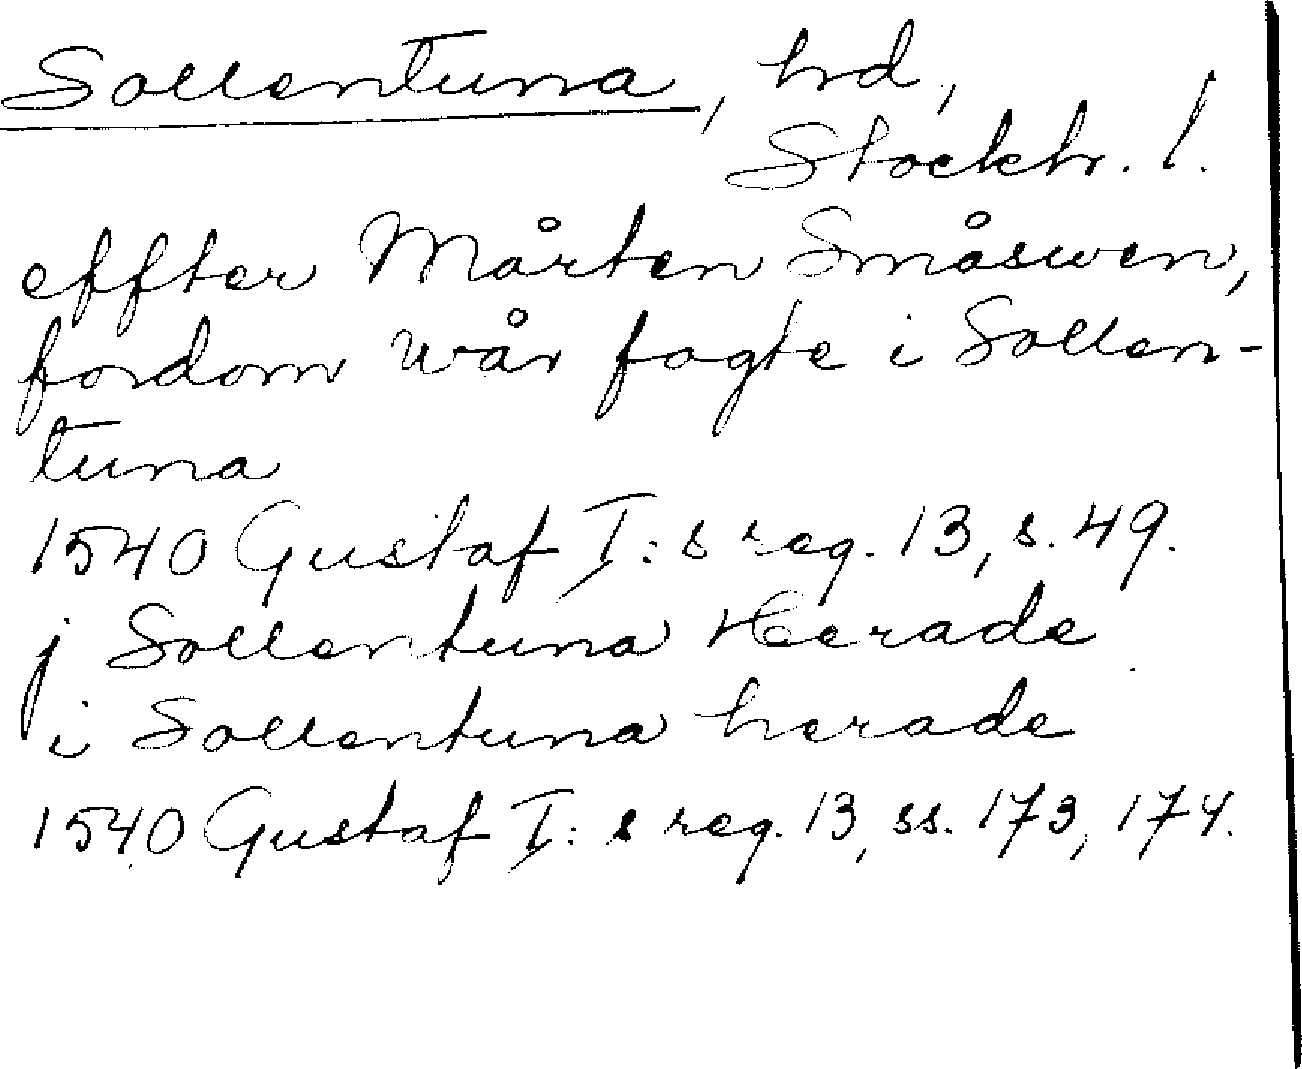 Sollentuna, hd,
Stockh. l.
effter Mårten Småswen,
fordom wår fogte i Sollen-
tuna
1540 Gustaf I:s reg. 13, s. 49.
j Sollentuna Herade
i Sollentuna herade
1540 Gustaf I:s reg. 13, ss. 173, 174.